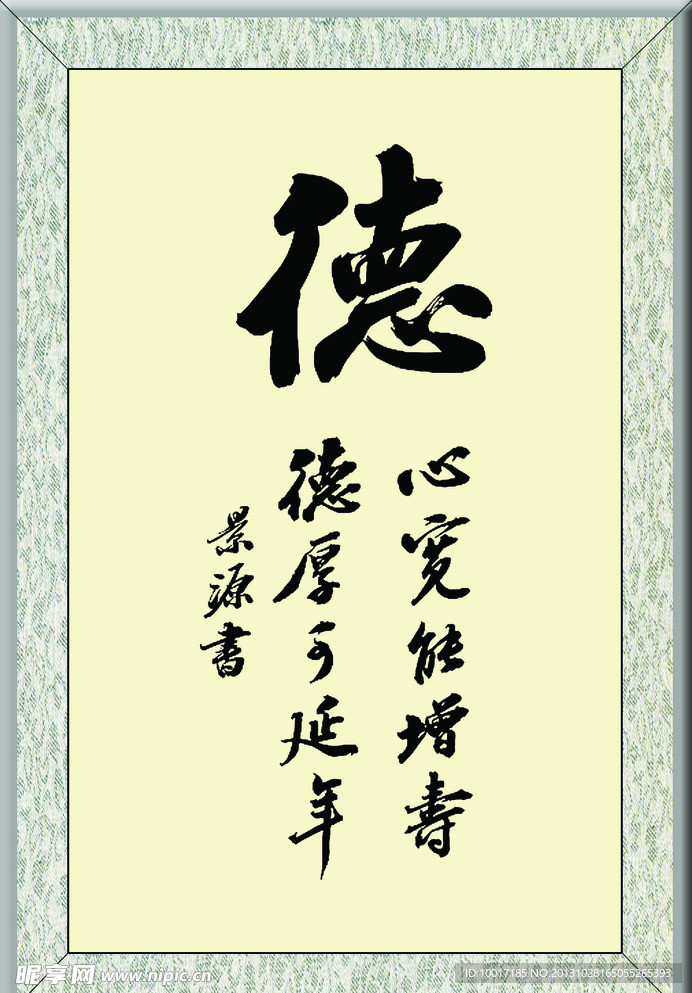 德
心宽能增寿
德厚可延年
景源书
昵享网 www.nipic.cn
ID:10017185 NO:20131028165055265393